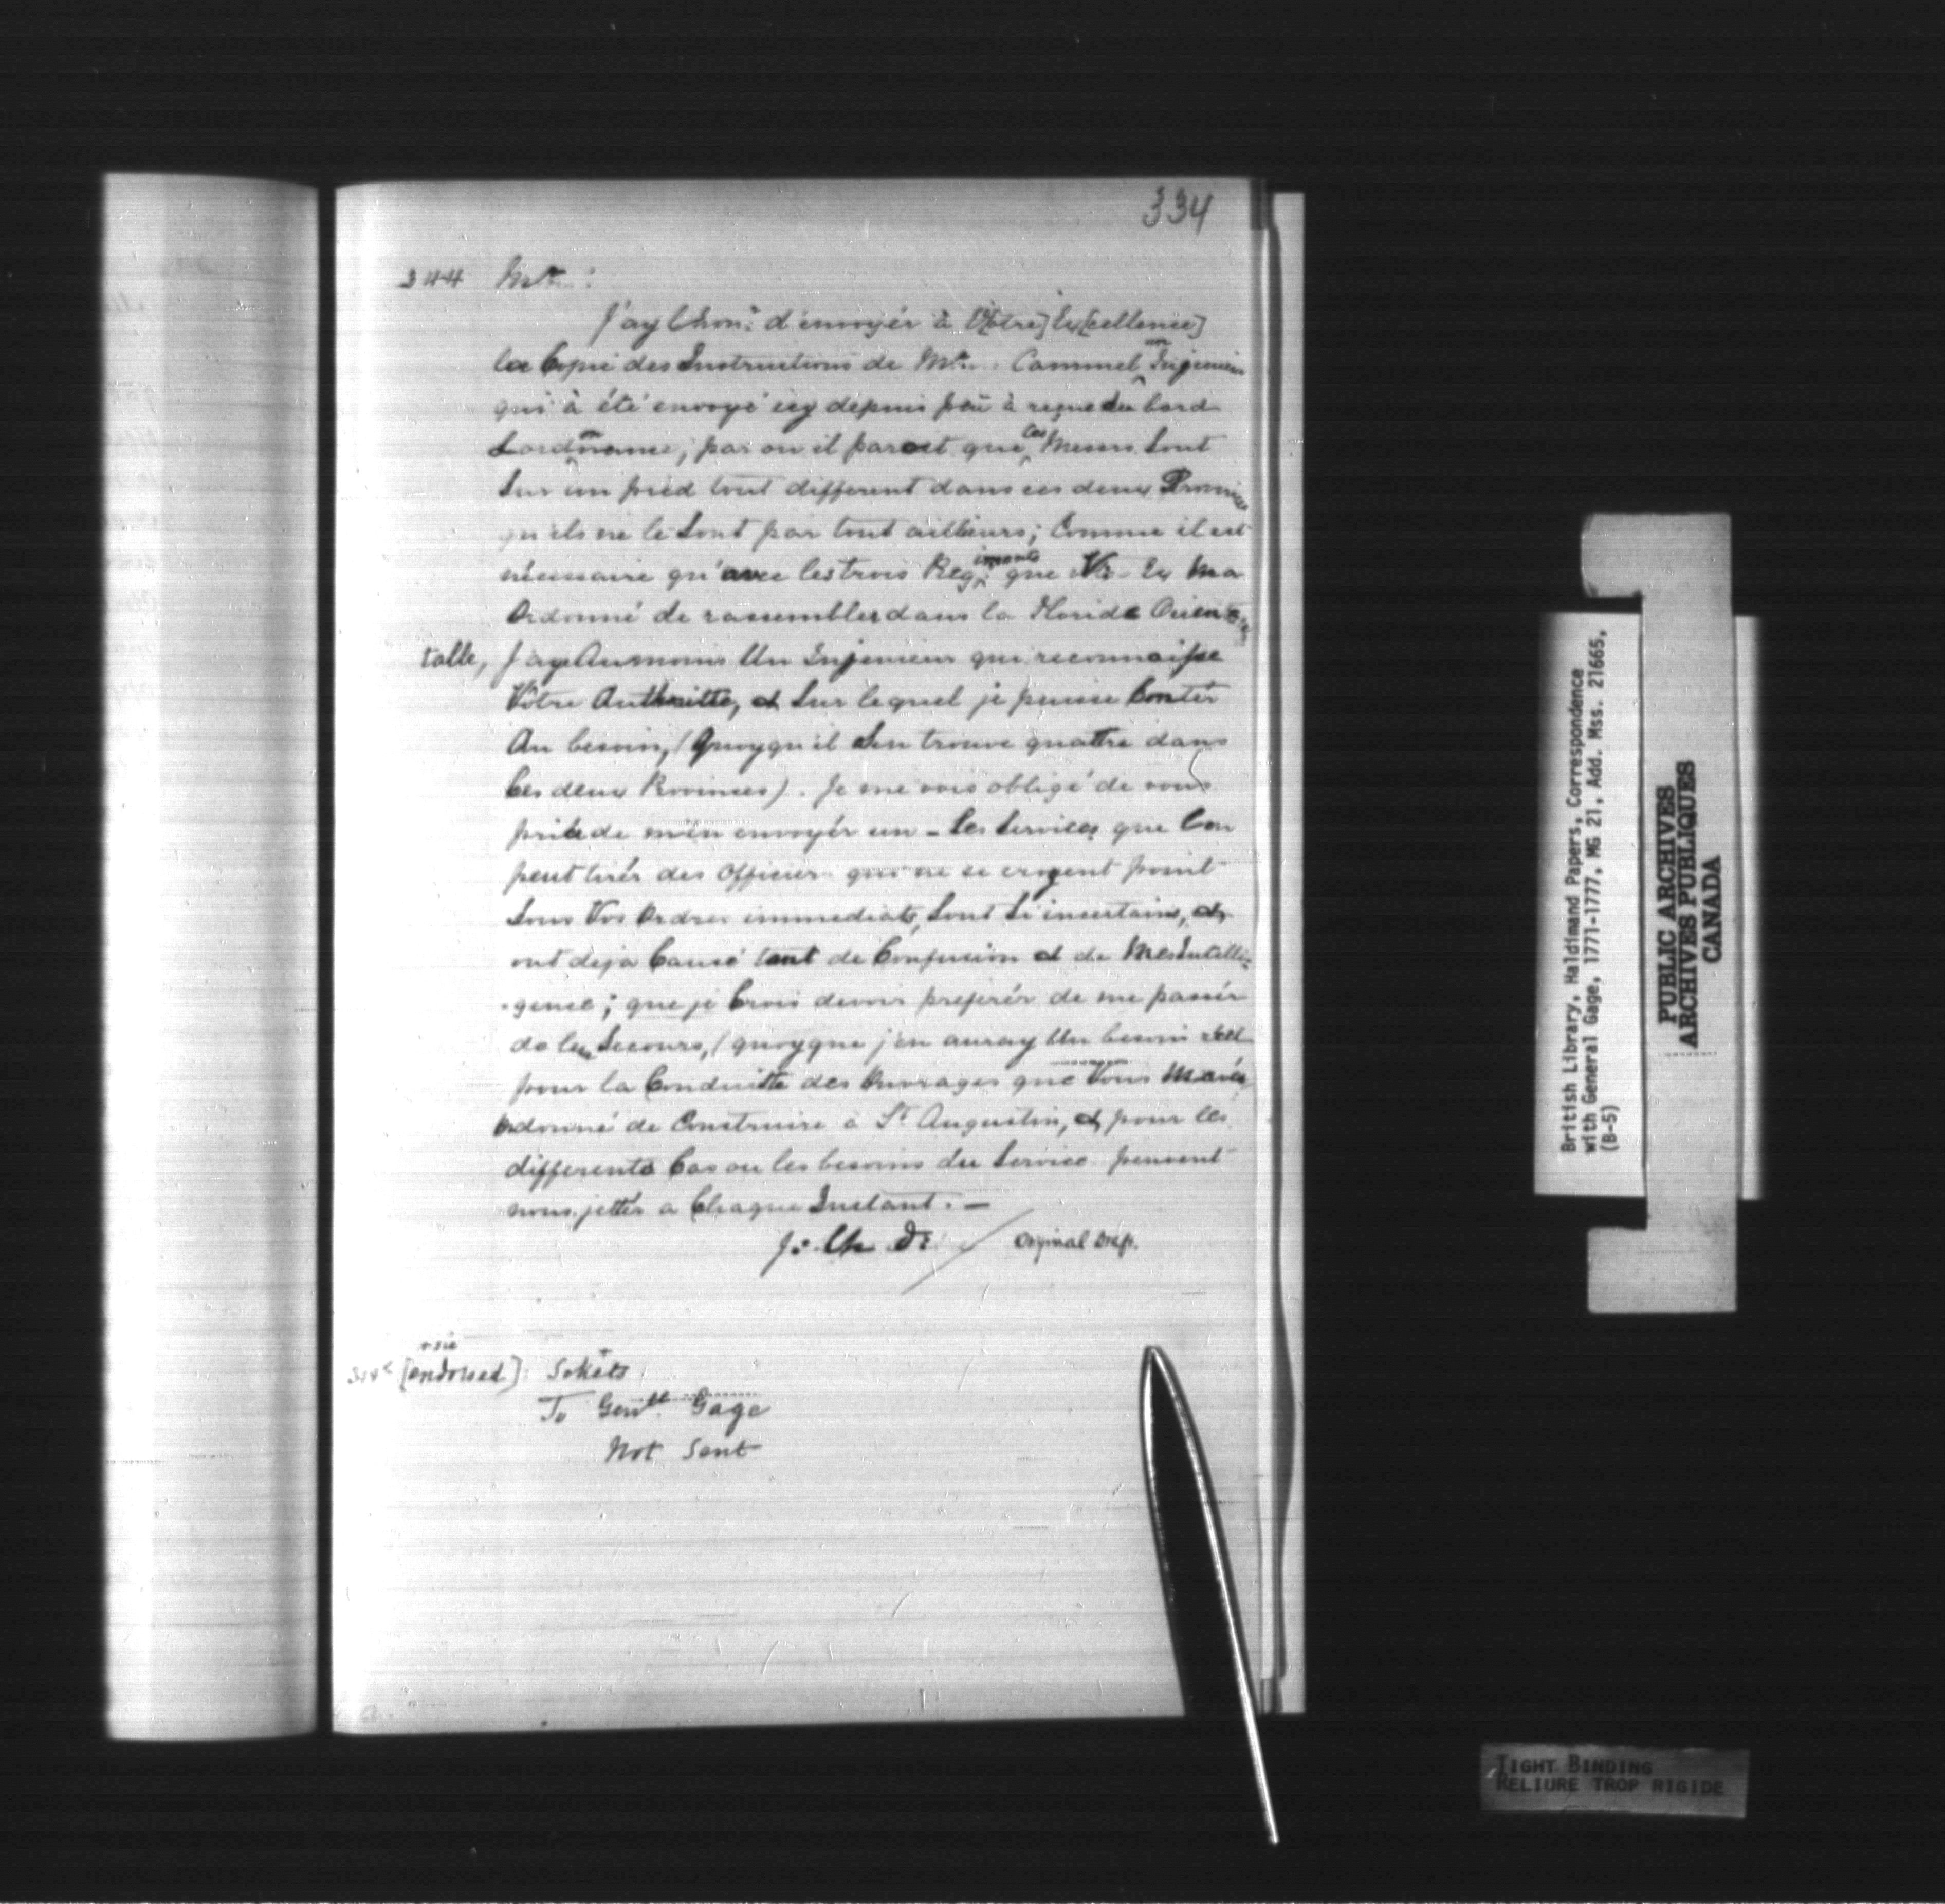 334
344 Mr. :
J'ay Lhonr. d'envoyér à V[otre] Ex[cellence]
la Copie des Instructions de Mr. . Cammel, un Injenieur
qui à été envoyé icy depuis peû à du bord
Lordnance; par ou il paroit que ces Messrs. Sont
Sur ûn pied tout different dans ces deux Provinces
qu'ils ne le Sont par tout ailleurs; Comme il est
nécessaire qu'avec les trois Regiments que Vre Ex ma
Ordonné de rassembler dans la Floride Orien-
talle, J'aye Aumoins Un Injenieur qui reconnaisse
Vôtre Authoritte, & Sur lequel je puisse Contér
Au besoin, (Quoyqu'il Sen trouve quattre dans
Ces deux Provinces). Je me vois obligé de vous
priér de m'en envoyér un - Les Services que Lon
peut tirér des Officiers qui ne se croyent point
Sous Vos Ordres immediats, Sont Si incertains, &
ont deja Causé tant de Confusion & de MesIntelli-
-gence; que je Crois devoir preferér de me passér
de leur Secours, (quoyque j'en auray Un besoin réél
pour la Conduitte des Ouvrages que Vous Mavés
Ordonné de Construire à St Augustin, & pour les
differents Cas ou les besoins du Service peuvent
nous jettér a Chaque Instant. -
J: Lh D: / Original Draft.
+ sic
[endorsed]: Sckets +
To Genll. Gage
Not Sent
British Library, Haldimand Papers, Correspondence
with General Gage, 1771-1777, MG 21, Add. Mss. 21665,
(B-5)
PUBLIC ARCHIVES
ARCHIVES PUBLIQUES
CANADA
TIGHT BINDING
RELIURE TROP RIGIDE